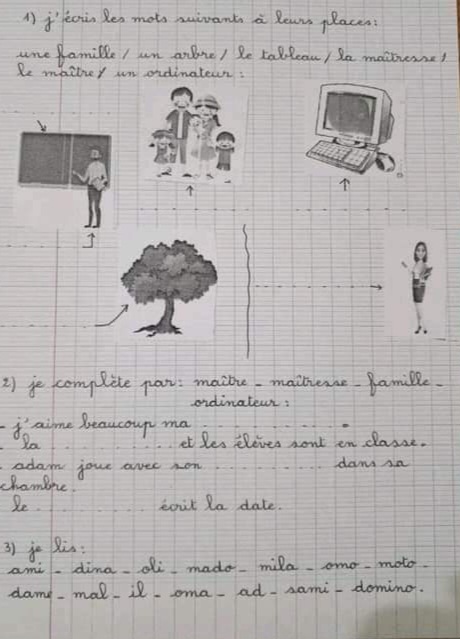 1) j'écris les mots suivants à leurs places:
une famille / un arbre / le tableau / la maitresse /
le maître / un ordinateur :
2) je complète par: maître - maîtresse - famille -
ordinateur :
- j'aime beaucoup ma .......... .
- la .......... et les élèves sont en classe.
- adam joue avec son .......... dans sa
chambre.
le .......... écrit la date.
3) je lis:
ami - dina - oli - mado - mila - omo - moto -
dame - mal - il - oma - ad - sami - domino.